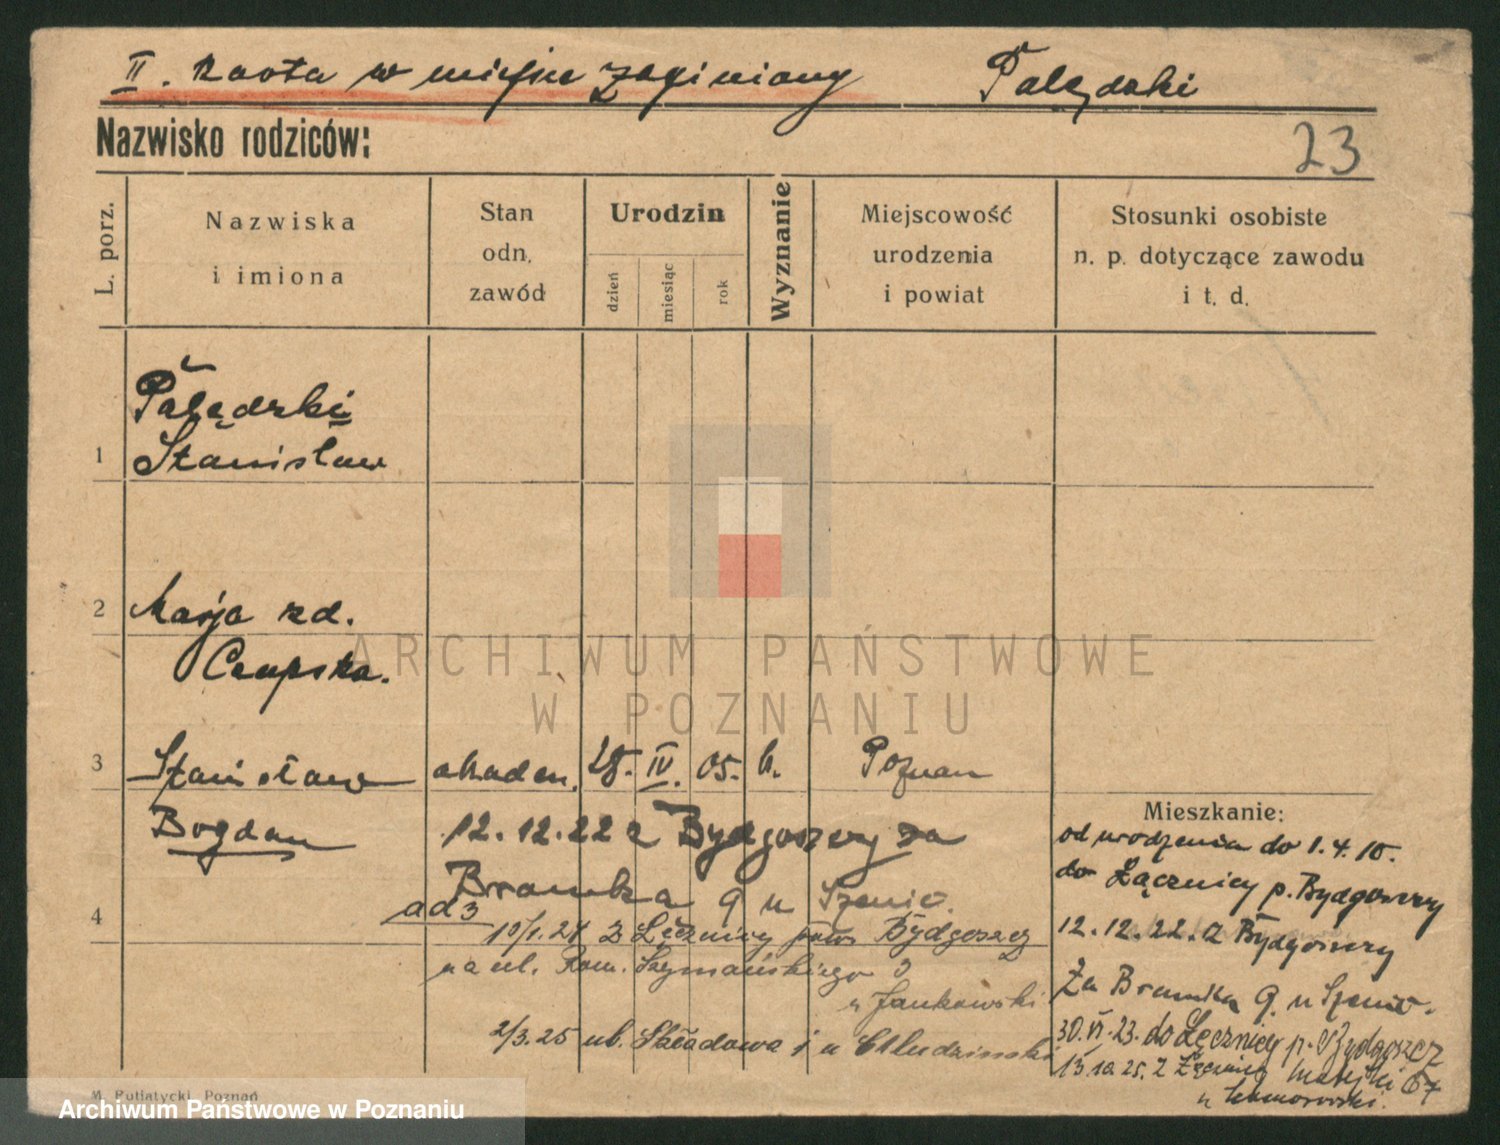 II. karta w miejsce zaginionej Palędzki
Nazwisko rodziców:
23
L. porz.
Nazwiska
i imiona
Stan
odn.
zawód
Urodzin
dzień
miesiąc
rok
Wyznanie
Miejscowość
urodzenia
i powiat
Stosunki osobiste
n. p. dotyczące zawodu
i t. d.
1
Palędzki
Stanisław
2 Marja zd.
Czupska.
ARCHIWUM PAŃSTWOWE
W POZNANIU
3 Stanisław akadem. 28. IV. 05. k. Poznan
Bogdan
Mieszkanie:
12.12.22 z Bydgoszczy za
Bramka 9 u
4
ad 3
10/1.24 z Łęcznicy pow. Bydgoszcz
na ul. Rom. Szymańskiego
u Jankowski
2/3.25 ul. Składowa 1 u Chludzinski
od urodzenia do 1.4.10.
do Łącznicy p. Bydgoszczy
12.12.22. z Bydgoszczy
Za Bramka 9 u
30.VI.23. do Łęcznicy p. Bydgoszcz
13.10.25. z Łęcznicy Matejki 67
u
M. Putiatycki, Poznań
Archiwum Państwowe w Poznaniu